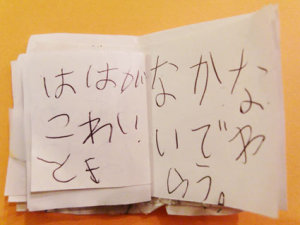 ははが
こわい!
とき
なかな
いでわ
らう。